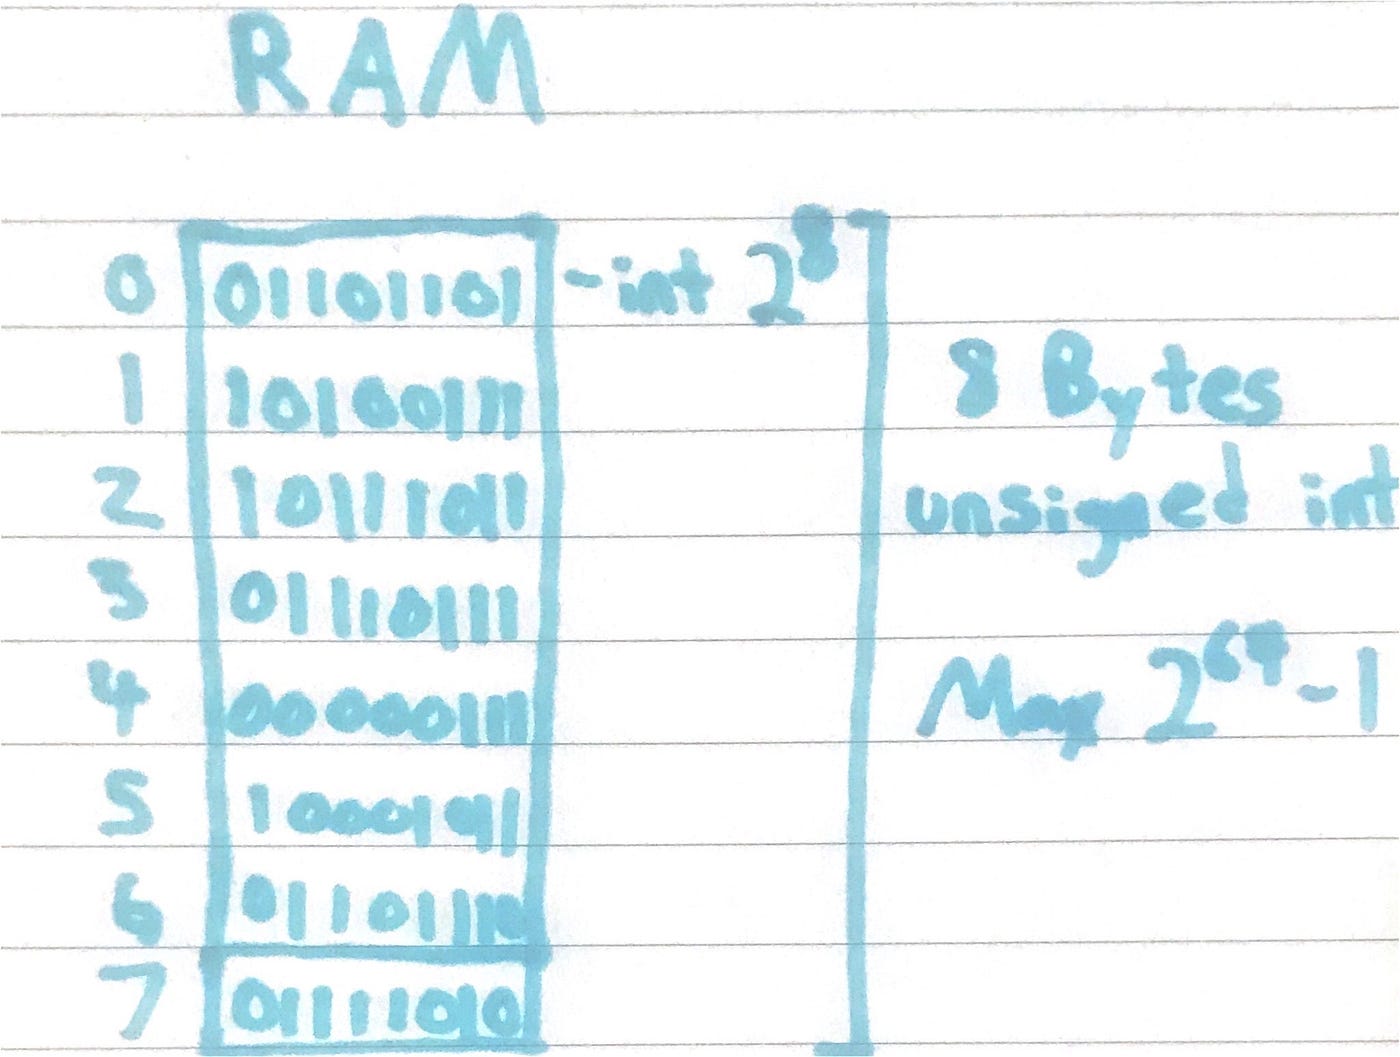 RAM
0 01101101 -int 2^8
1 10100111
8 Bytes
2 10111011
unsigned int
3 01110111
4 00000111
Max 2^64-1
5
6 01101110
7 01111010